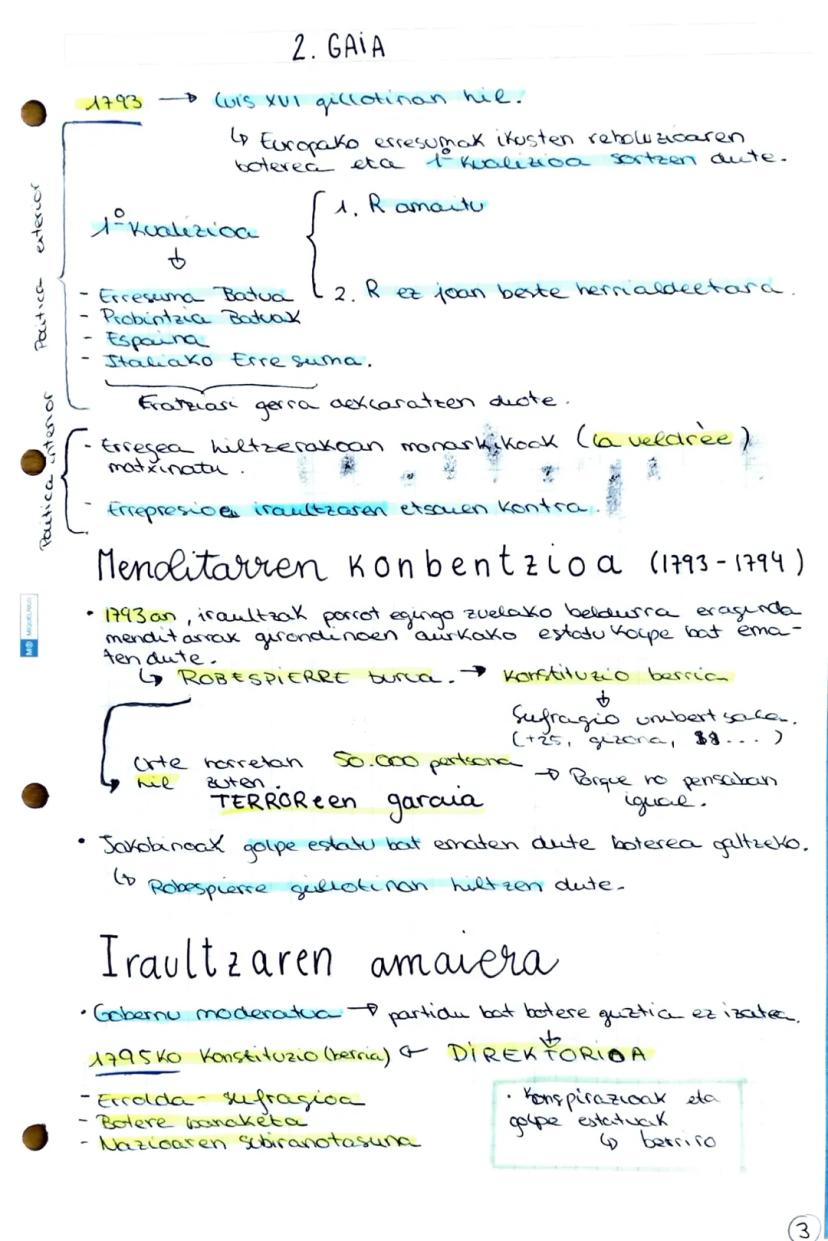 2. GAIA
1793 → Luis XVI gillotinan hil.
↳ Europako erresumak ikusten reboluzioaren
boterea eta 1º Koalizioa sortzen dute.
Politica exterior
1º Koalizioa
↓
1. R amaitu
2. R ez joan beste herrialdeetara.
- Erresuma Batua
- Probintzia Batuak
- Espaina
- Italiako Erresuma.
Frantziari gerra deklaratzen diote.
Politica interior
- Erregea hiltzerakoan monarkikoak (la veldrèe)
matxinatu.
- Errepresioa iraultzaren etsaien kontra.
Menditarren Konbentzioa (1793-1794)
• 1793an, iraultzak porrot egingo zuelako beldurra eraginda
menditarrak girondinoen aurkako estatu kolpe bat ema-
ten dute.
↳ ROBESPIERRE burua. → Konstituzio berria
↓
Sufragio unibertsala.
(+25, gizona, $$...)
Urte horretan 50.000 pertsona
hil zuten. → Porque no pensaban
igual.
TERROReen garaia
• Jakobinoak golpe estatu bat ematen dute boterea galtzeko.
↳ Robespierre gillotinan hiltzen dute.
Iraultzaren amaiera
• Gobernu moderatua → partidu bat botere guztia ez izatea.
↓
1795KO Konstituzio (berria) ← DIREKTORIOA
- Errolda-sufragioa
- Botere banaketa
- Nazioaren subiranotasuna
• Konspirazioak eta
golpe estatuak
↳ berriro
3